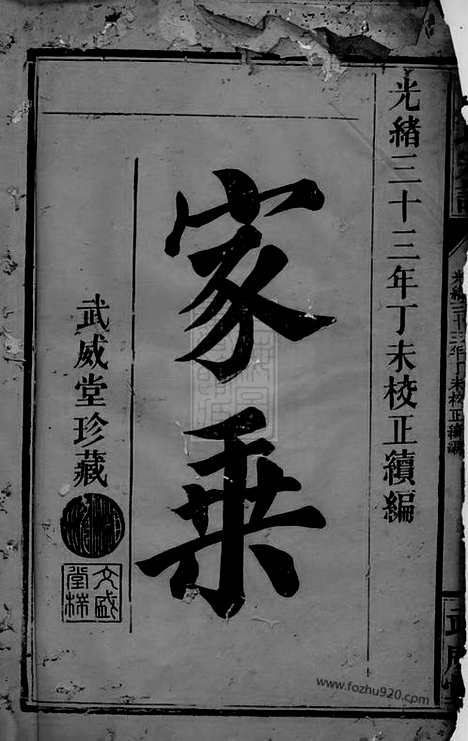 光緒三十三年丁未校正續編
家乘
武威堂珍藏
光緒三十三年丁未校正續編
www.fozhu920.com